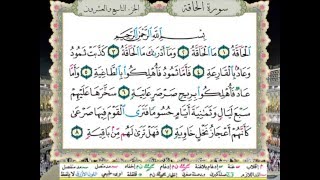 سورة الحاقة
الجزء التاسع والعشرون
بسم الله الرحمن الرحيم
الحاقة ١ ما الحاقة ٢ وما أدراك ما الحاقة ٣ كذبت ثمود
وعاد بالقارعة ٤ فأما ثمود فأهلكوا بالطاغية ٥ وأما
عاد فأهلكوا بريح صرصر عاتية ٦ سخرها عليهم
سبع ليال وثمانية أيام حسوما فترى القوم فيها صرعى
كأنهم أعجاز نخل خاوية ٧ فهل ترى لهم من باقية ٨